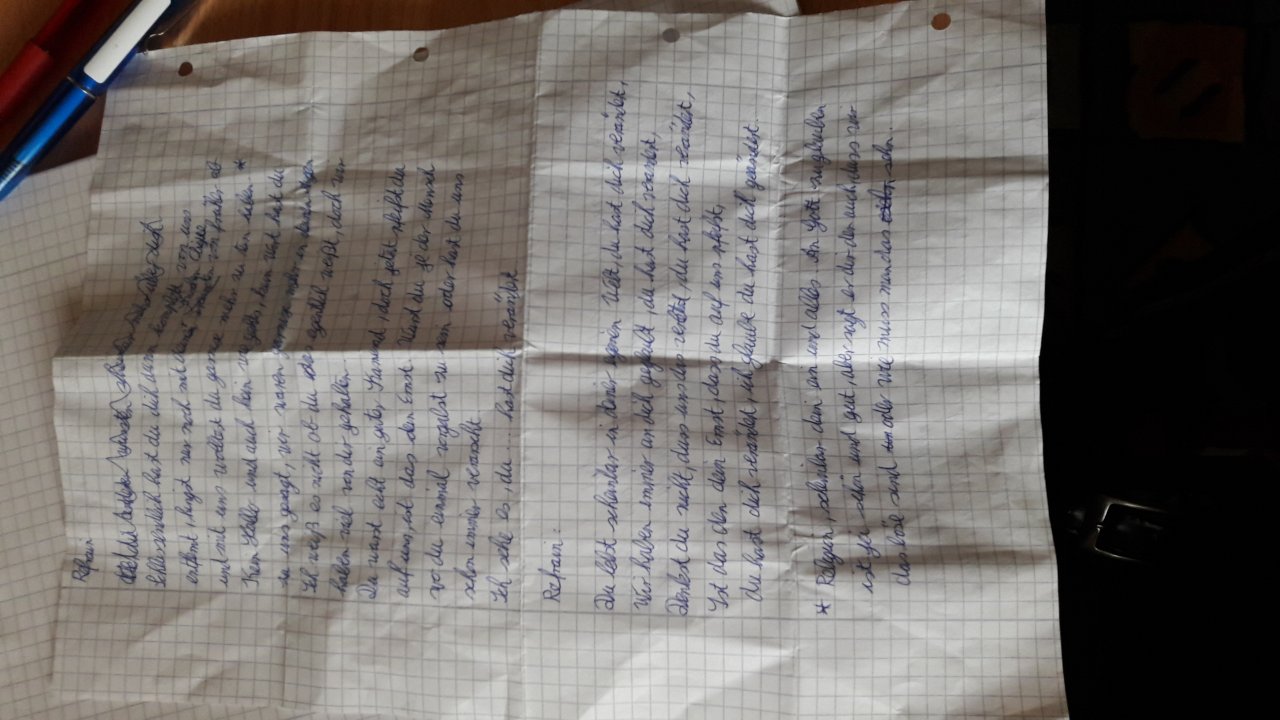 Refrain:
Selbstverständlich hast du dich von uns
entfernt, hingst nur noch mit deiner
und mit uns wolltest du garnix mehr zu tun haben *
Kein Hallo und auch kein wie gehts, kein Wort hast du
zu uns gesagt, wir waren
Ich weiß es nicht ob du das eigentlich weißt, doch wir
haben viel von dir gehalten.
Du warst echt ein guter Kumpel, doch jetzt pfeifst du
auf uns, ist das dein Ernst. Wirst du je der Mensch
wo du einmal warst zu uns oder hast du uns
schon immer verarscht
Ich sehe es, du ... hast dich verändert
Refrain:
Du lebst scheinbar in deiner eigenen Welt, du hast dich verändert,
Wir haben immer an dich geglaubt, du hast dich verändert,
Denkst du nicht, dass uns das verletzt, du hast dich verändert,
Ist das den dein Ernst, dass du auf uns pfeifst,
du hast dich verändert, ich glaube du hast dich geändert.
* Religion, scheinbar dein ein und alles. An Gott zu glauben
ist ja schön und gut, aber sagt er dir den auch, dass wir
das böse sind oder wie muss man das sehn.